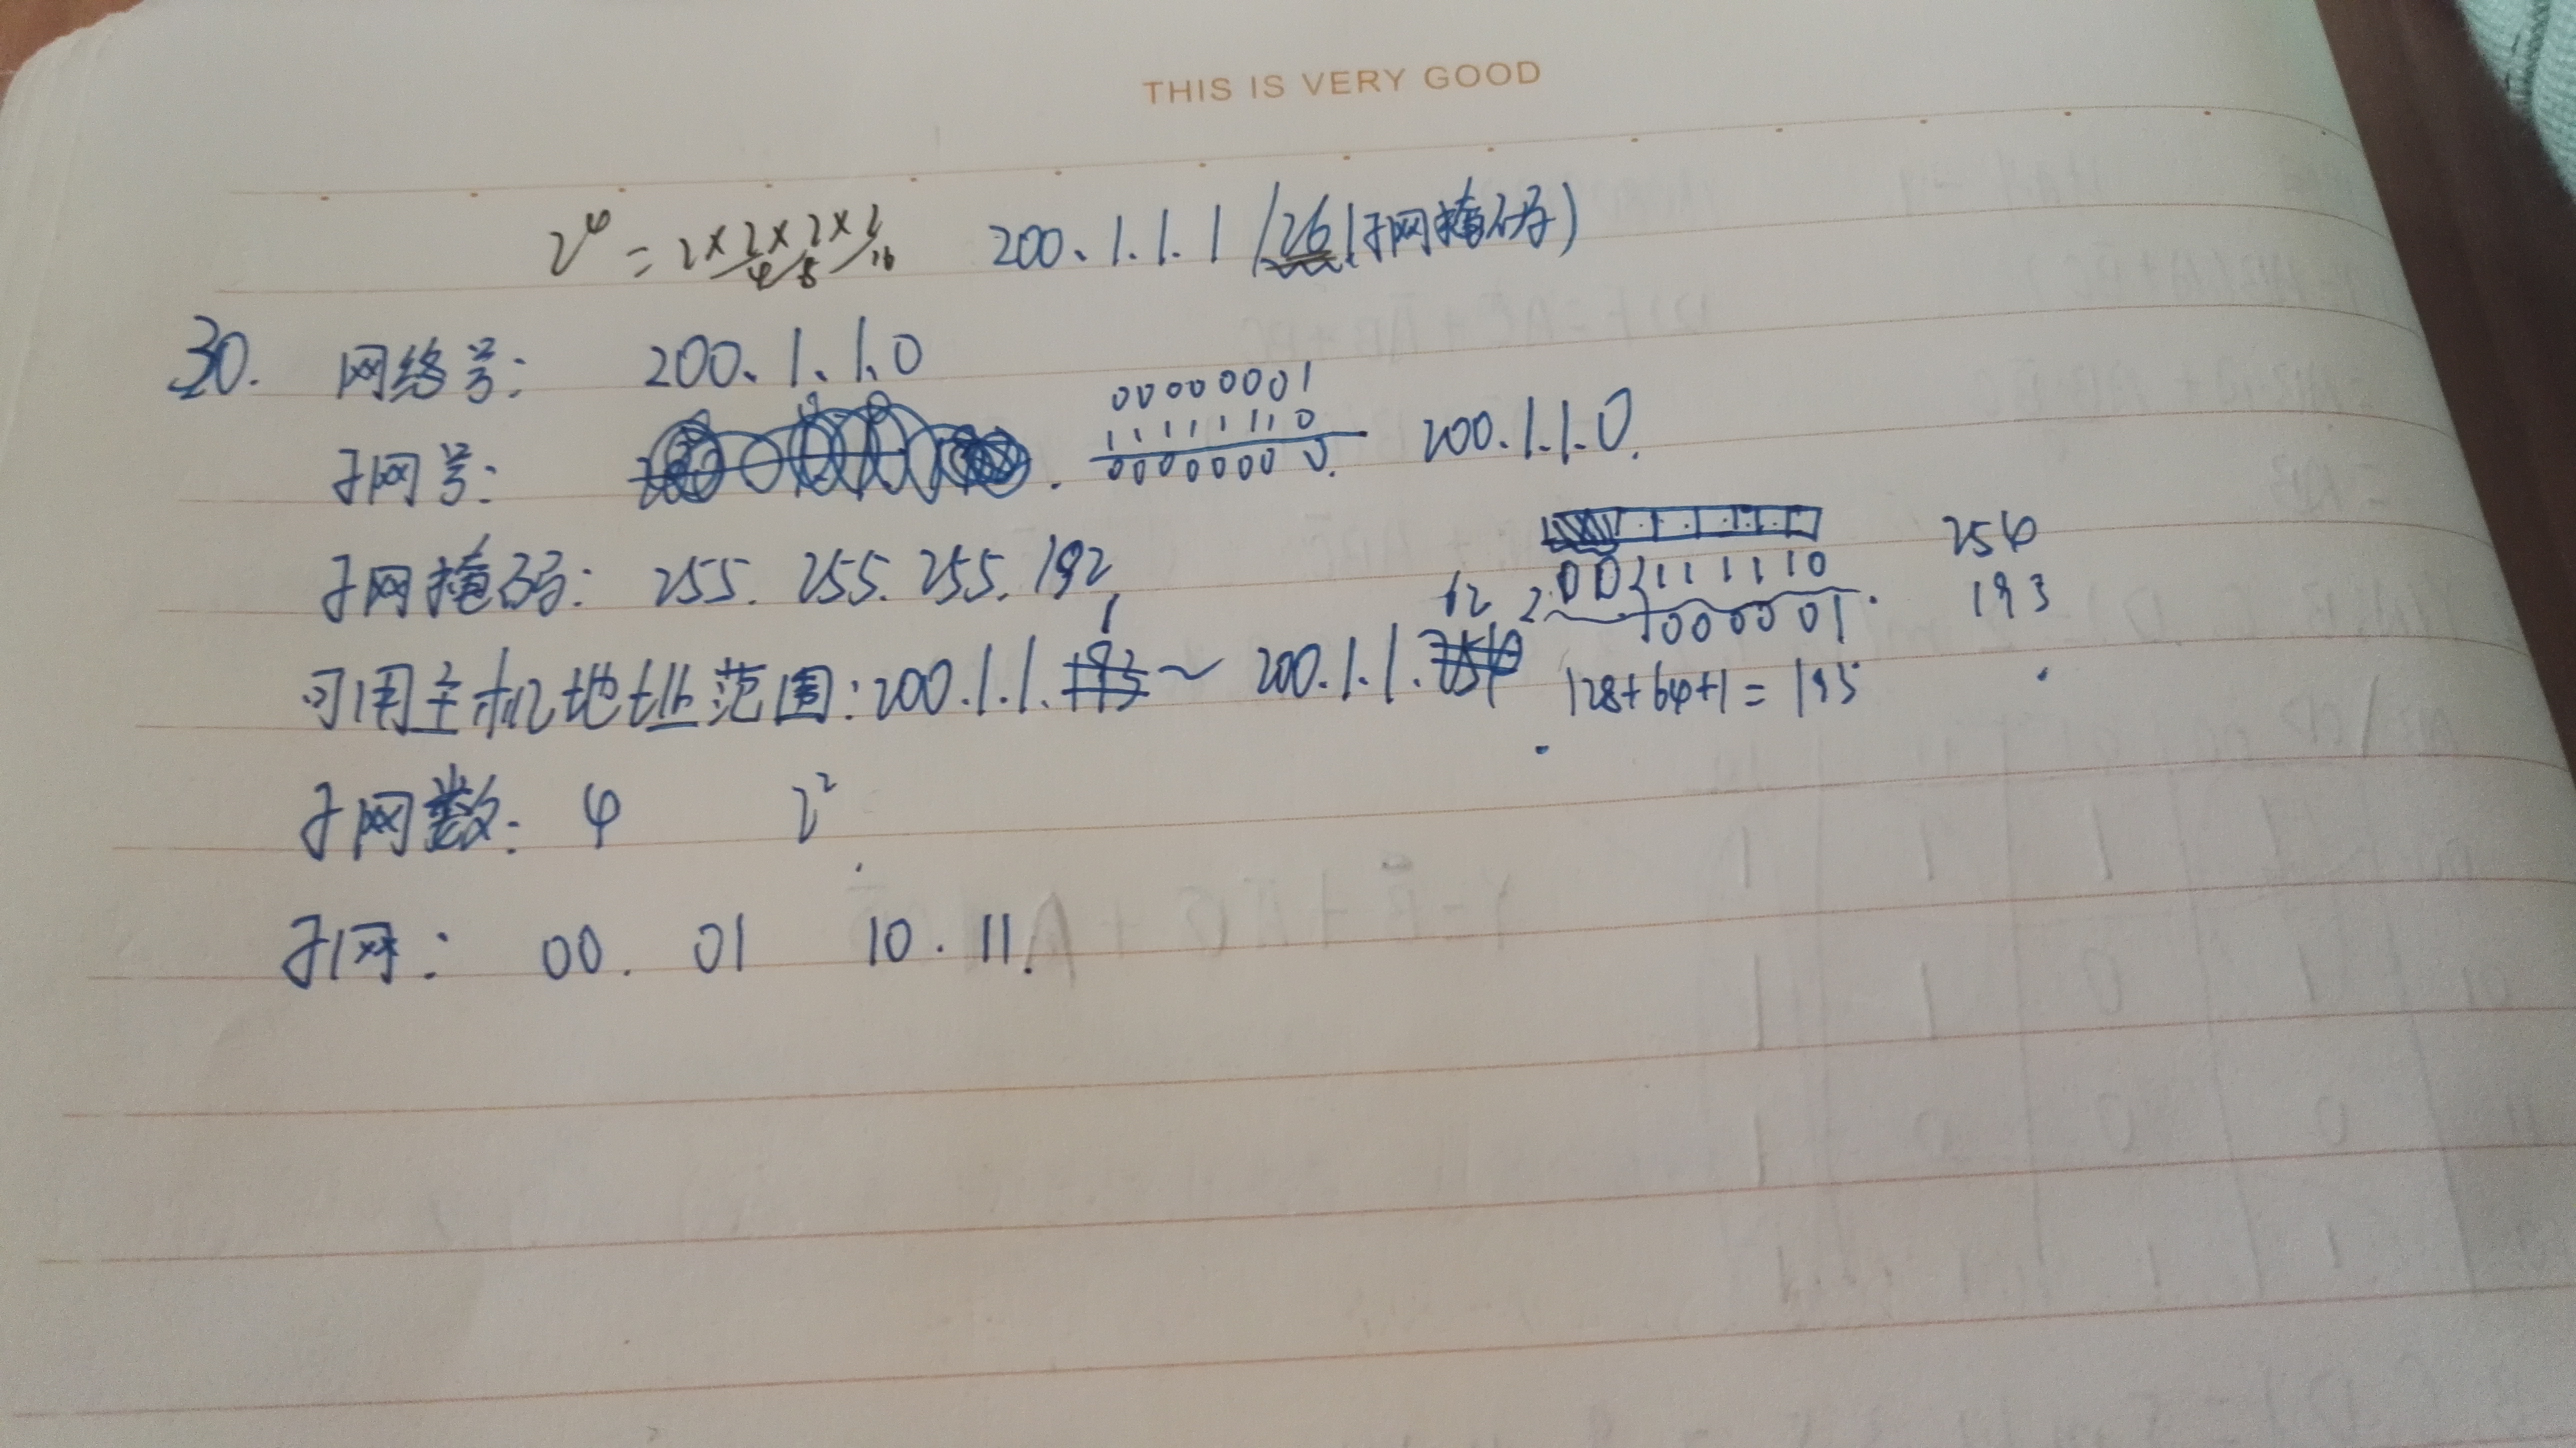 THIS IS VERY GOOD
2⁴ = 2×2×2×2 4 8 16 200.1.1.1 /26(子网掩码)
30. 网络号: 200.1.1.0
00000001
子网号: 11111110 200.1.1.0.
0000000 0.
子网掩码: 255.255.255.192
00111110 254
62 000001. 193
可用主机地址范围: 200.1.1.193 1 ~ 200.1.1.254
128+64+1=193
子网数: 4 2²
子网: 00. 01 10. 11.